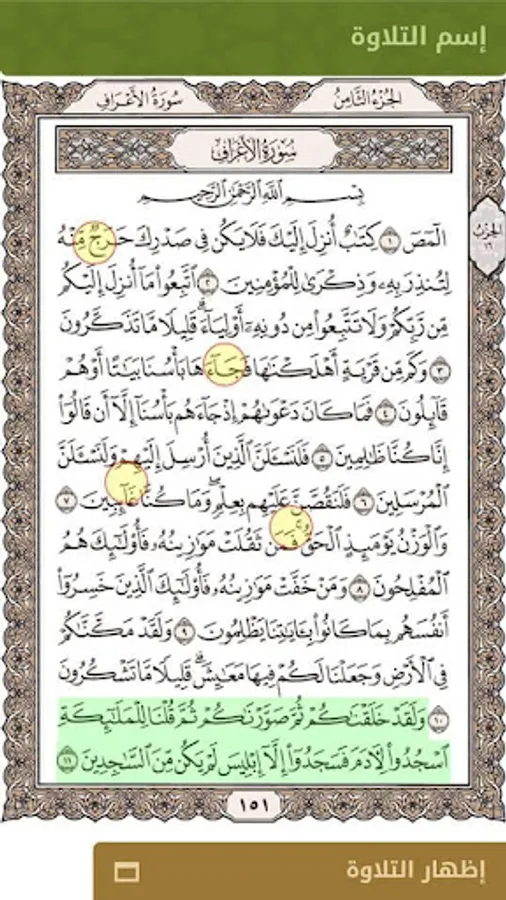 إسم التلاوة
الجزء الثامن
سورة الأعراف
سُورَةُ الأَعْرَافِ
بِسْمِ ٱللَّهِ ٱلرَّحْمَٰنِ ٱلرَّحِيمِ
الٓمٓصٓ ١ كِتَٰبٌ أُنزِلَ إِلَيْكَ فَلَا يَكُن فِى صَدْرِكَ حَرَجٌ مِّنْهُ
الحزب ١٦
لِتُنذِرَ بِهِۦ وَذِكْرَىٰ لِلْمُؤْمِنِينَ ٢ ٱتَّبِعُوا۟ مَآ أُنزِلَ إِلَيْكُم
مِّن رَّبِّكُمْ وَلَا تَتَّبِعُوا۟ مِن دُونِهِۦٓ أَوْلِيَآءَ ۗ قَلِيلًا مَّا تَذَكَّرُونَ
٣ وَكَم مِّن قَرْيَةٍ أَهْلَكْنَٰهَا فَجَآءَهَا بَأْسُنَا بَيَٰتًا أَوْ هُمْ
قَآئِلُونَ ٤ فَمَا كَانَ دَعْوَىٰهُمْ إِذْ جَآءَهُم بَأْسُنَآ إِلَّآ أَن قَالُوٓا۟
إِنَّا كُنَّا ظَٰلِمِينَ ٥ فَلَنَسْـَٔلَنَّ ٱلَّذِينَ أُرْسِلَ إِلَيْهِمْ وَلَنَسْـَٔلَنَّ
ٱلْمُرْسَلِينَ ٦ فَلَنَقُصَّنَّ عَلَيْهِم بِعِلْمٍ ۖ وَمَا كُنَّا غَآئِبِينَ ٧
وَٱلْوَزْنُ يَوْمَئِذٍ ٱلْحَقُّ ۚ فَمَن ثَقُلَتْ مَوَٰزِينُهُۥ فَأُو۟لَٰٓئِكَ هُمُ
ٱلْمُفْلِحُونَ ٨ وَمَنْ خَفَّتْ مَوَٰزِينُهُۥ فَأُو۟لَٰٓئِكَ ٱلَّذِينَ خَسِرُوٓا۟
أَنفُسَهُم بِمَا كَانُوا۟ بِـَٔايَٰتِنَا يَظْلِمُونَ ٩ وَلَقَدْ مَكَّنَّٰكُمْ
فِى ٱلْأَرْضِ وَجَعَلْنَا لَكُمْ فِيهَا مَعَٰيِشَ ۗ قَلِيلًا مَّا تَشْكُرُونَ
١٠ وَلَقَدْ خَلَقْنَٰكُمْ ثُمَّ صَوَّرْنَٰكُمْ ثُمَّ قُلْنَا لِلْمَلَٰٓئِكَةِ
ٱسْجُدُوا۟ لِـَٔادَمَ فَسَجَدُوٓا۟ إِلَّآ إِبْلِيسَ لَمْ يَكُن مِّنَ ٱلسَّٰجِدِينَ ١١
١٥١
إظهار التلاوة